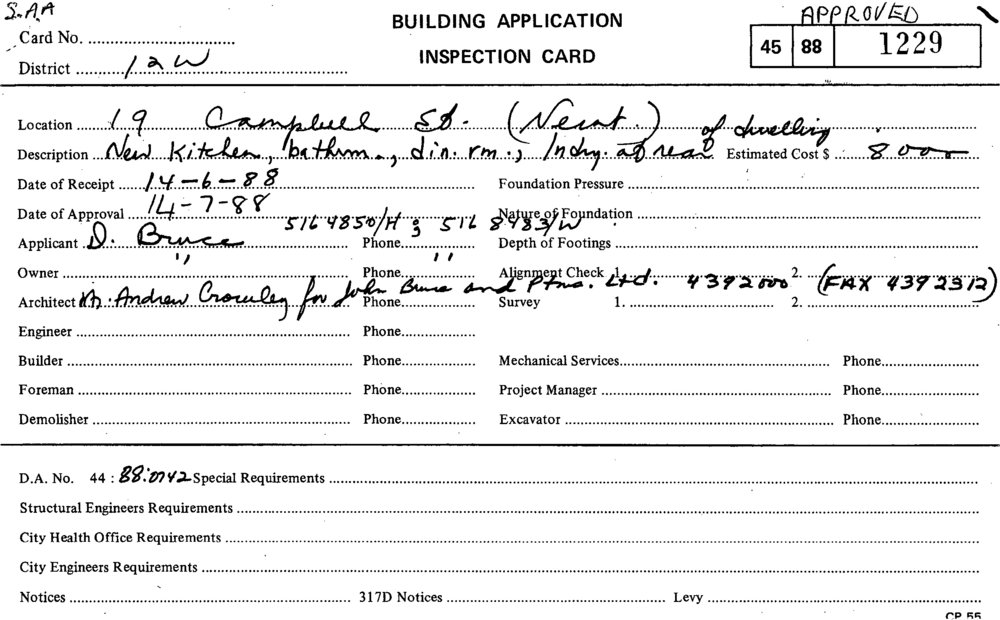 S.A.A
BUILDING APPLICATION
APPROVED
Card No.
INSPECTION CARD
45 88 1229
District 12W
Location 19 Campbell St. (Newt.)
Description New Kitchen, bathrm., din. rm., lndry. at rear of dwelling Estimated Cost $ 8000
Date of Receipt 14-6-88 Foundation Pressure
Date of Approval 14-7-88 Nature of Foundation
516 4850/H & 516 8483/W
Applicant D. Bruce Phone Depth of Footings
Owner " Phone " Alignment Check 1. 2.
Architect M. Andrew Crowley for John Bruce and Ptnrs. Ltd. 4392000 (FAX 439 2312) Phone Survey 1. 2.
Engineer Phone
Builder Phone Mechanical Services Phone
Foreman Phone Project Manager Phone
Demolisher Phone Excavator Phone
D.A. No. 44 : 88:0742 Special Requirements
Structural Engineers Requirements
City Health Office Requirements
City Engineers Requirements
Notices 317D Notices Levy
CP 55